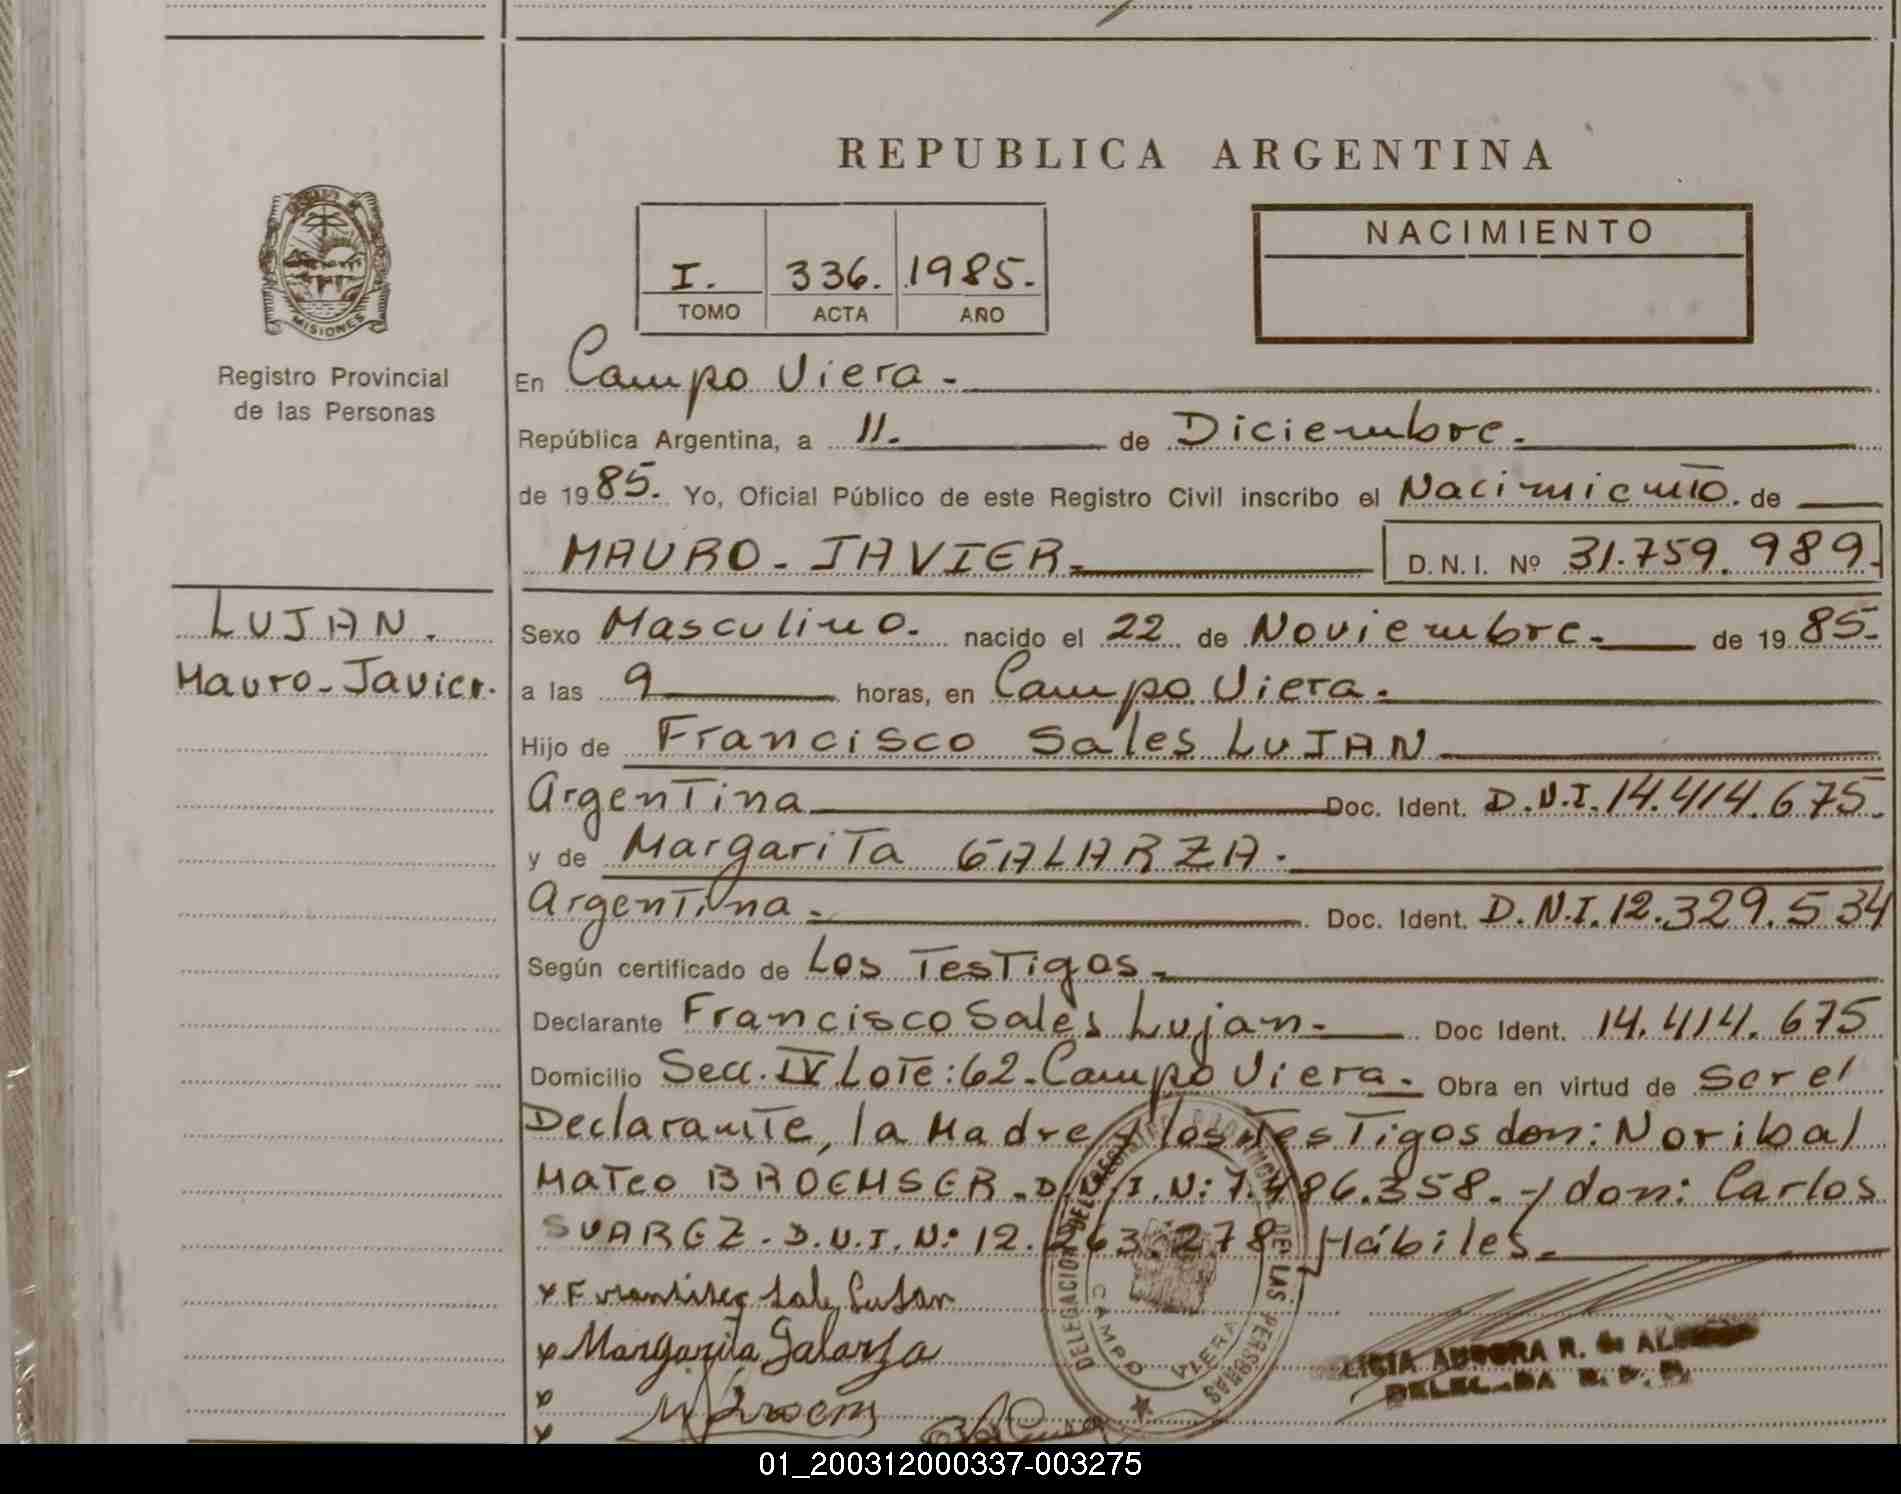 REPUBLICA ARGENTINA
NACIMIENTO
I. 336. 1985.
TOMO ACTA AÑO
MISIONES
Registro Provincial
de las Personas
En Campo Viera.
República Argentina, a 11. de Diciembre.
de 1985. Yo, Oficial Público de este Registro Civil inscribo el Nacimiento. de
MAURO - JAVIER. D.N.I. Nº 31.759.989.
LUJAN.
Mauro-Javier.
Sexo Masculino. nacido el 22 de Noviembre. de 1985.
a las 9 horas, en Campo Viera.
Hijo de Francisco Sales LUJAN
Argentina Doc. Ident. D.N.I. 14.414.675.
y de Margarita GALARZA.
Argentina. Doc. Ident. D.N.I. 12.329.534
Según certificado de Los Testigos.
Declarante Francisco Sales Lujan. Doc Ident. 14.414.675
Domicilio Secc. IV Lote: 62. Campo Viera. Obra en virtud de Ser el
Declarante, la Madre y los Testigos don: Noribal
Mateo BROEMSER. D.N.I. N: 7.486.358. y don: Carlos
SUAREZ. D.N.I. N: 12.263.278 Hábiles.
x Margarita Galarza
DELEGACION DEL REGISTRO DE LAS PERSONAS
CAMPO VIERA
AURORA R. de
01_200312000337-003275